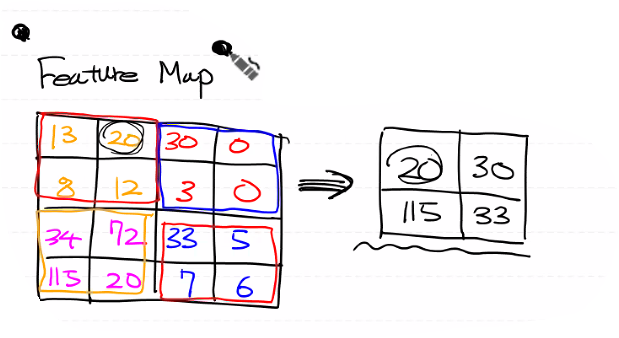 Feature Map
13 20 30 0
8 12 3 0
34 72 33 5
115 20 7 6
20 30
115 33